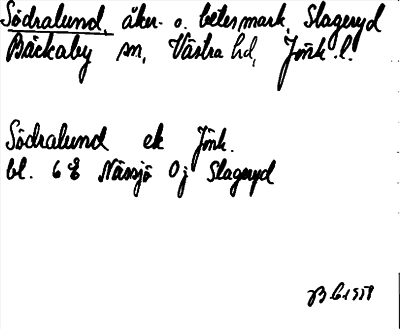 Södralund, åker- o. betesmark, Slageryd
Bäckaby sn, Västra hd, Jönk. l.
Södralund ek Jönk.
bl. 6 E Nässjö 0 j Slageryd